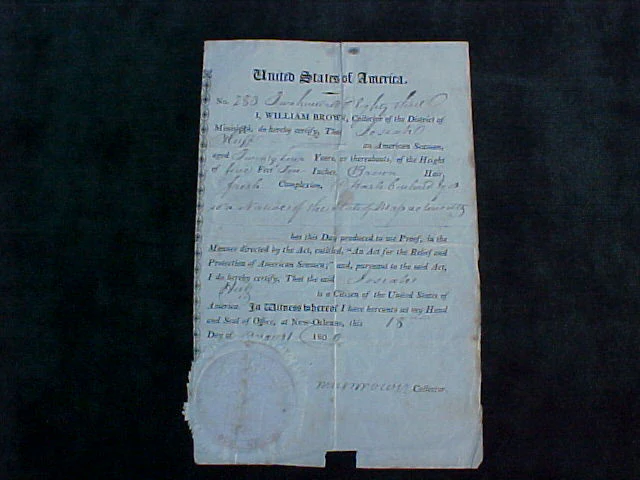 United States of America.
No. 283 Two hundred Eighty three
I, WILLIAM BROWN, Collector of the District of
Mississippi, do hereby certify, That Josiah
an American Seaman,
aged Twenty four Years, or thereabouts, of the Height
of five Feet Ten Inches, Brown Hair,
fresh Complexion,
is a Native of the State of Massachusetts
has this Day produced to me Proof, in the
Manner directed by the Act, entitled, "An Act for the Relief and
Protection of American Seamen;" and, pursuant to the said Act,
I do hereby certify, That the said Josiah
is a Citizen of the United States of
America. In Witness whereof I have hereunto set my Hand
and Seal of Office, at New-Orleans, this 18
Day of August 180
Collector.